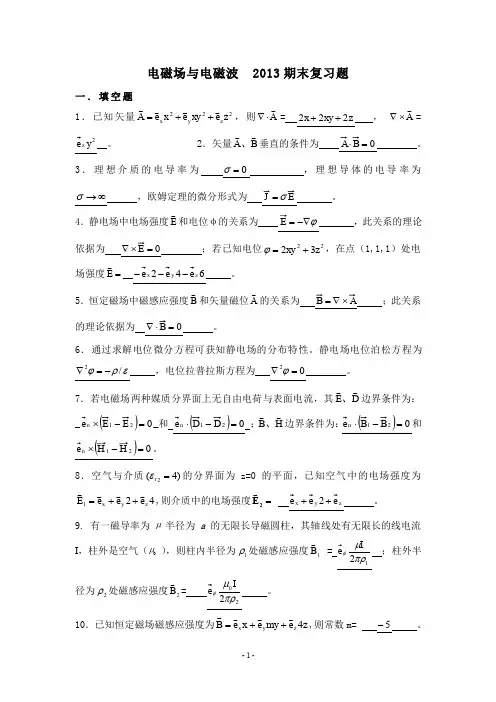 电磁场与电磁波 2013期末复习题
一．填空题
1．已知矢量 $\vec{A}=\vec{e}_x x^2+\vec{e}_y xy^2+\vec{e}_z z^2$，则 $\nabla\cdot\vec{A}$= $2x+2xy+2z$ ， $\nabla\times\vec{A}$=
$\vec{e}_z y^2$ 。 2．矢量 $\vec{A}、\vec{B}$ 垂直的条件为 $\vec{A}\cdot\vec{B}=0$ 。
3．理想介质的电导率为 $\sigma=0$ ，理想导体的电导率为
$\sigma\to\infty$ ，欧姆定理的微分形式为 $\vec{J}=\sigma\vec{E}$ 。
4．静电场中电场强度 $\vec{E}$ 和电位φ的关系为 $\vec{E}=-\nabla\varphi$ ，此关系的理论
依据为 $\nabla\times\vec{E}=0$ ；若已知电位 $\varphi=2xy^2+3z^2$，在点（1,1,1）处电
场强度 $\vec{E}=$ $-\vec{e}_x 2-\vec{e}_y 4-\vec{e}_z 6$ 。
5．恒定磁场中磁感应强度 $\vec{B}$ 和矢量磁位 $\vec{A}$ 的关系为 $\vec{B}=\nabla\times\vec{A}$ ；此关系
的理论依据为 $\nabla\cdot\vec{B}=0$ 。
6．通过求解电位微分方程可获知静电场的分布特性。静电场电位泊松方程为
$\nabla^2\varphi=-\rho/\varepsilon$ ，电位拉普拉斯方程为 $\nabla^2\varphi=0$ 。
7．若电磁场两种媒质分界面上无自由电荷与表面电流，其 $\vec{E}、\vec{D}$ 边界条件为：
$\vec{e}_n\times(\vec{E}_1-\vec{E}_2)=0$ 和 $\vec{e}_n\cdot(\vec{D}_1-\vec{D}_2)=0$ ；$\vec{B}、\vec{H}$ 边界条件为：$\vec{e}_n\cdot(\vec{B}_1-\vec{B}_2)=0$ 和
$\vec{e}_n\times(\vec{H}_1-\vec{H}_2)=0$ 。
8．空气与介质 $(\varepsilon_{r2}=4)$ 的分界面为 z=0 的平面，已知空气中的电场强度为
$\vec{E}_1=\vec{e}_x+\vec{e}_y 2+\vec{e}_z 4$，则介质中的电场强度 $\vec{E}_2=$ $\vec{e}_x+\vec{e}_y 2+\vec{e}_z$ 。
9. 有一磁导率为 μ 半径为 a 的无限长导磁圆柱，其轴线处有无限长的线电流
I，柱外是空气（$\mu_0$ ），则柱内半径为 $\rho_1$ 处磁感应强度 $\vec{B}_1$ = $\vec{e}_\phi\frac{\mu I}{2\pi\rho_1}$ ；柱外半
径为 $\rho_2$ 处磁感应强度 $\vec{B}_2$= $\vec{e}_\phi\frac{\mu_0 I}{2\pi\rho_2}$ 。
10．已知恒定磁场磁感应强度为 $\vec{B}=\vec{e}_x x+\vec{e}_y my+\vec{e}_z 4z$，则常数 m= $-5$ 。
- 1 -